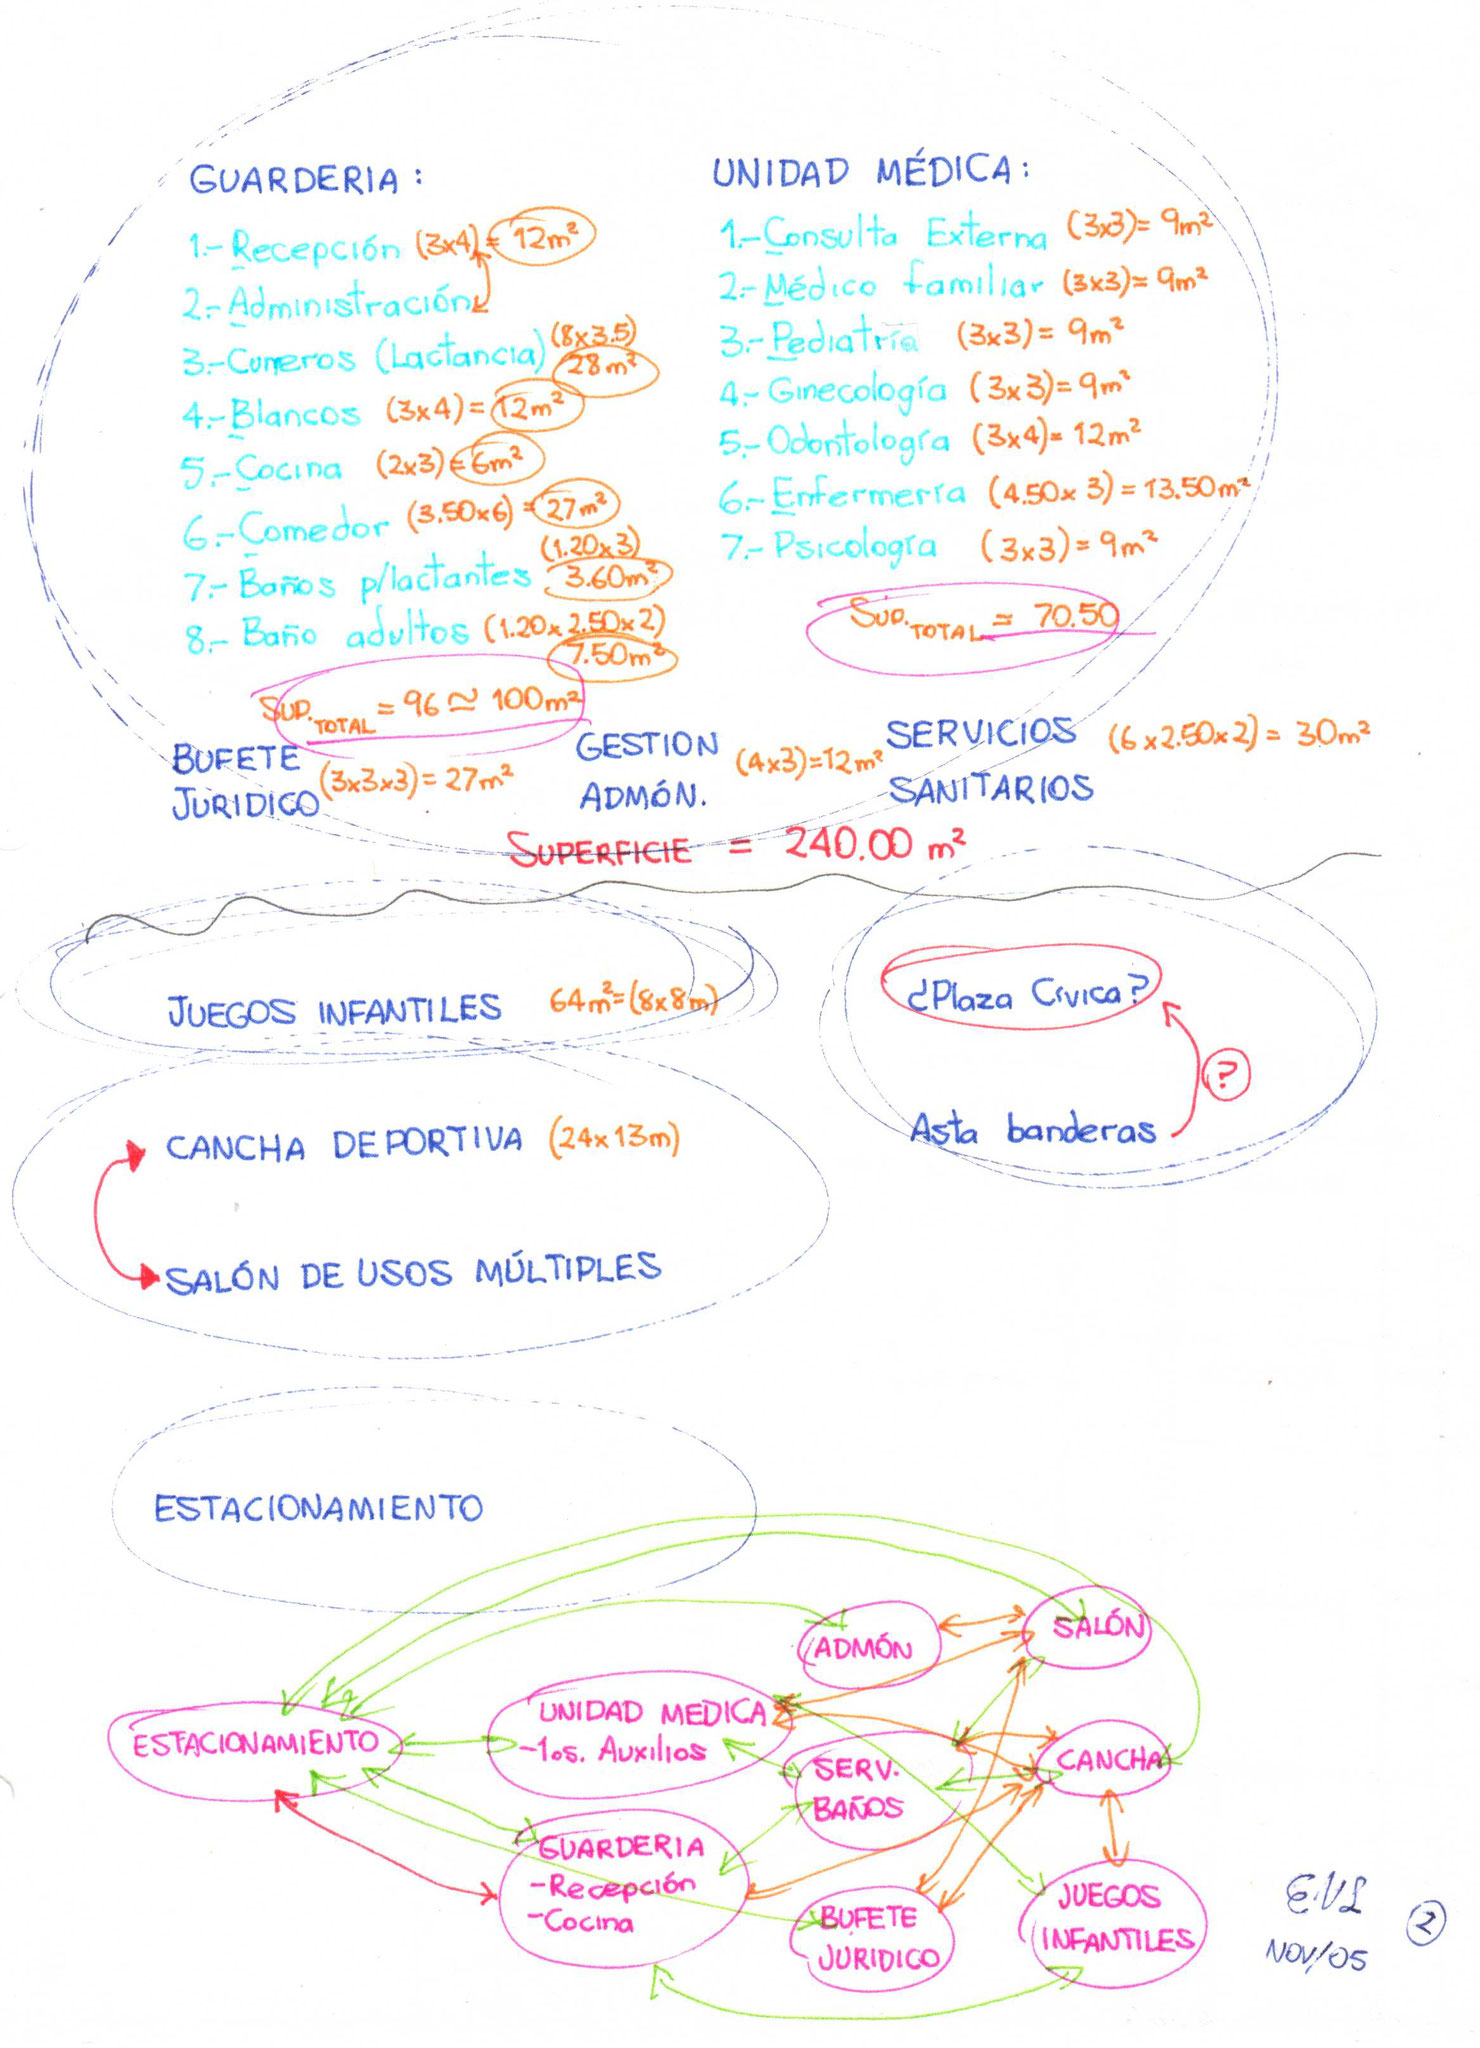 GUARDERIA:
1.- Recepción (3x4) = 12m²
2.- Administración
3.- Cuneros (Lactancia) (8x3.5)
28m²
4.- Blancos (3x4) = 12m²
5.- Cocina (2x3) = 6m²
6.- Comedor (3.50x6) = 27m²
7.- Baños p/lactantes (1.20x3)
3.60m²
8.- Baño adultos (1.20x2.50x2)
7.50m²
SUP. TOTAL = 96 ≃ 100m²
UNIDAD MÉDICA:
1.- Consulta Externa (3x3)= 9m²
2.- Médico familiar (3x3)= 9m²
3.- Pediatría (3x3)= 9m²
4.- Ginecología (3x3)= 9m²
5.- Odontología (3x4)= 12m²
6.- Enfermería (4.50x3) = 13.50m²
7.- Psicología (3x3) = 9m²
SUP. TOTAL = 70.50
BUFETE
JURIDICO (3x3x3) = 27m²
GESTION
ADMÓN. (4x3)=12m²
SERVICIOS
SANITARIOS (6x2.50x2) = 30m²
SUPERFICIE = 240.00 m²
JUEGOS INFANTILES 64m²=(8x8m)
¿Plaza Cívica?
?
Asta banderas
CANCHA DEPORTIVA (24x13m)
SALÓN DE USOS MÚLTIPLES
ESTACIONAMIENTO
SALÓN
ADMÓN
UNIDAD MEDICA
-1os. Auxilios
ESTACIONAMIENTO
SERV.
BAÑOS
CANCHA
GUARDERIA
-Recepción
-Cocina
BUFETE
JURIDICO
JUEGOS
INFANTILES
EVL
NOV/05
2